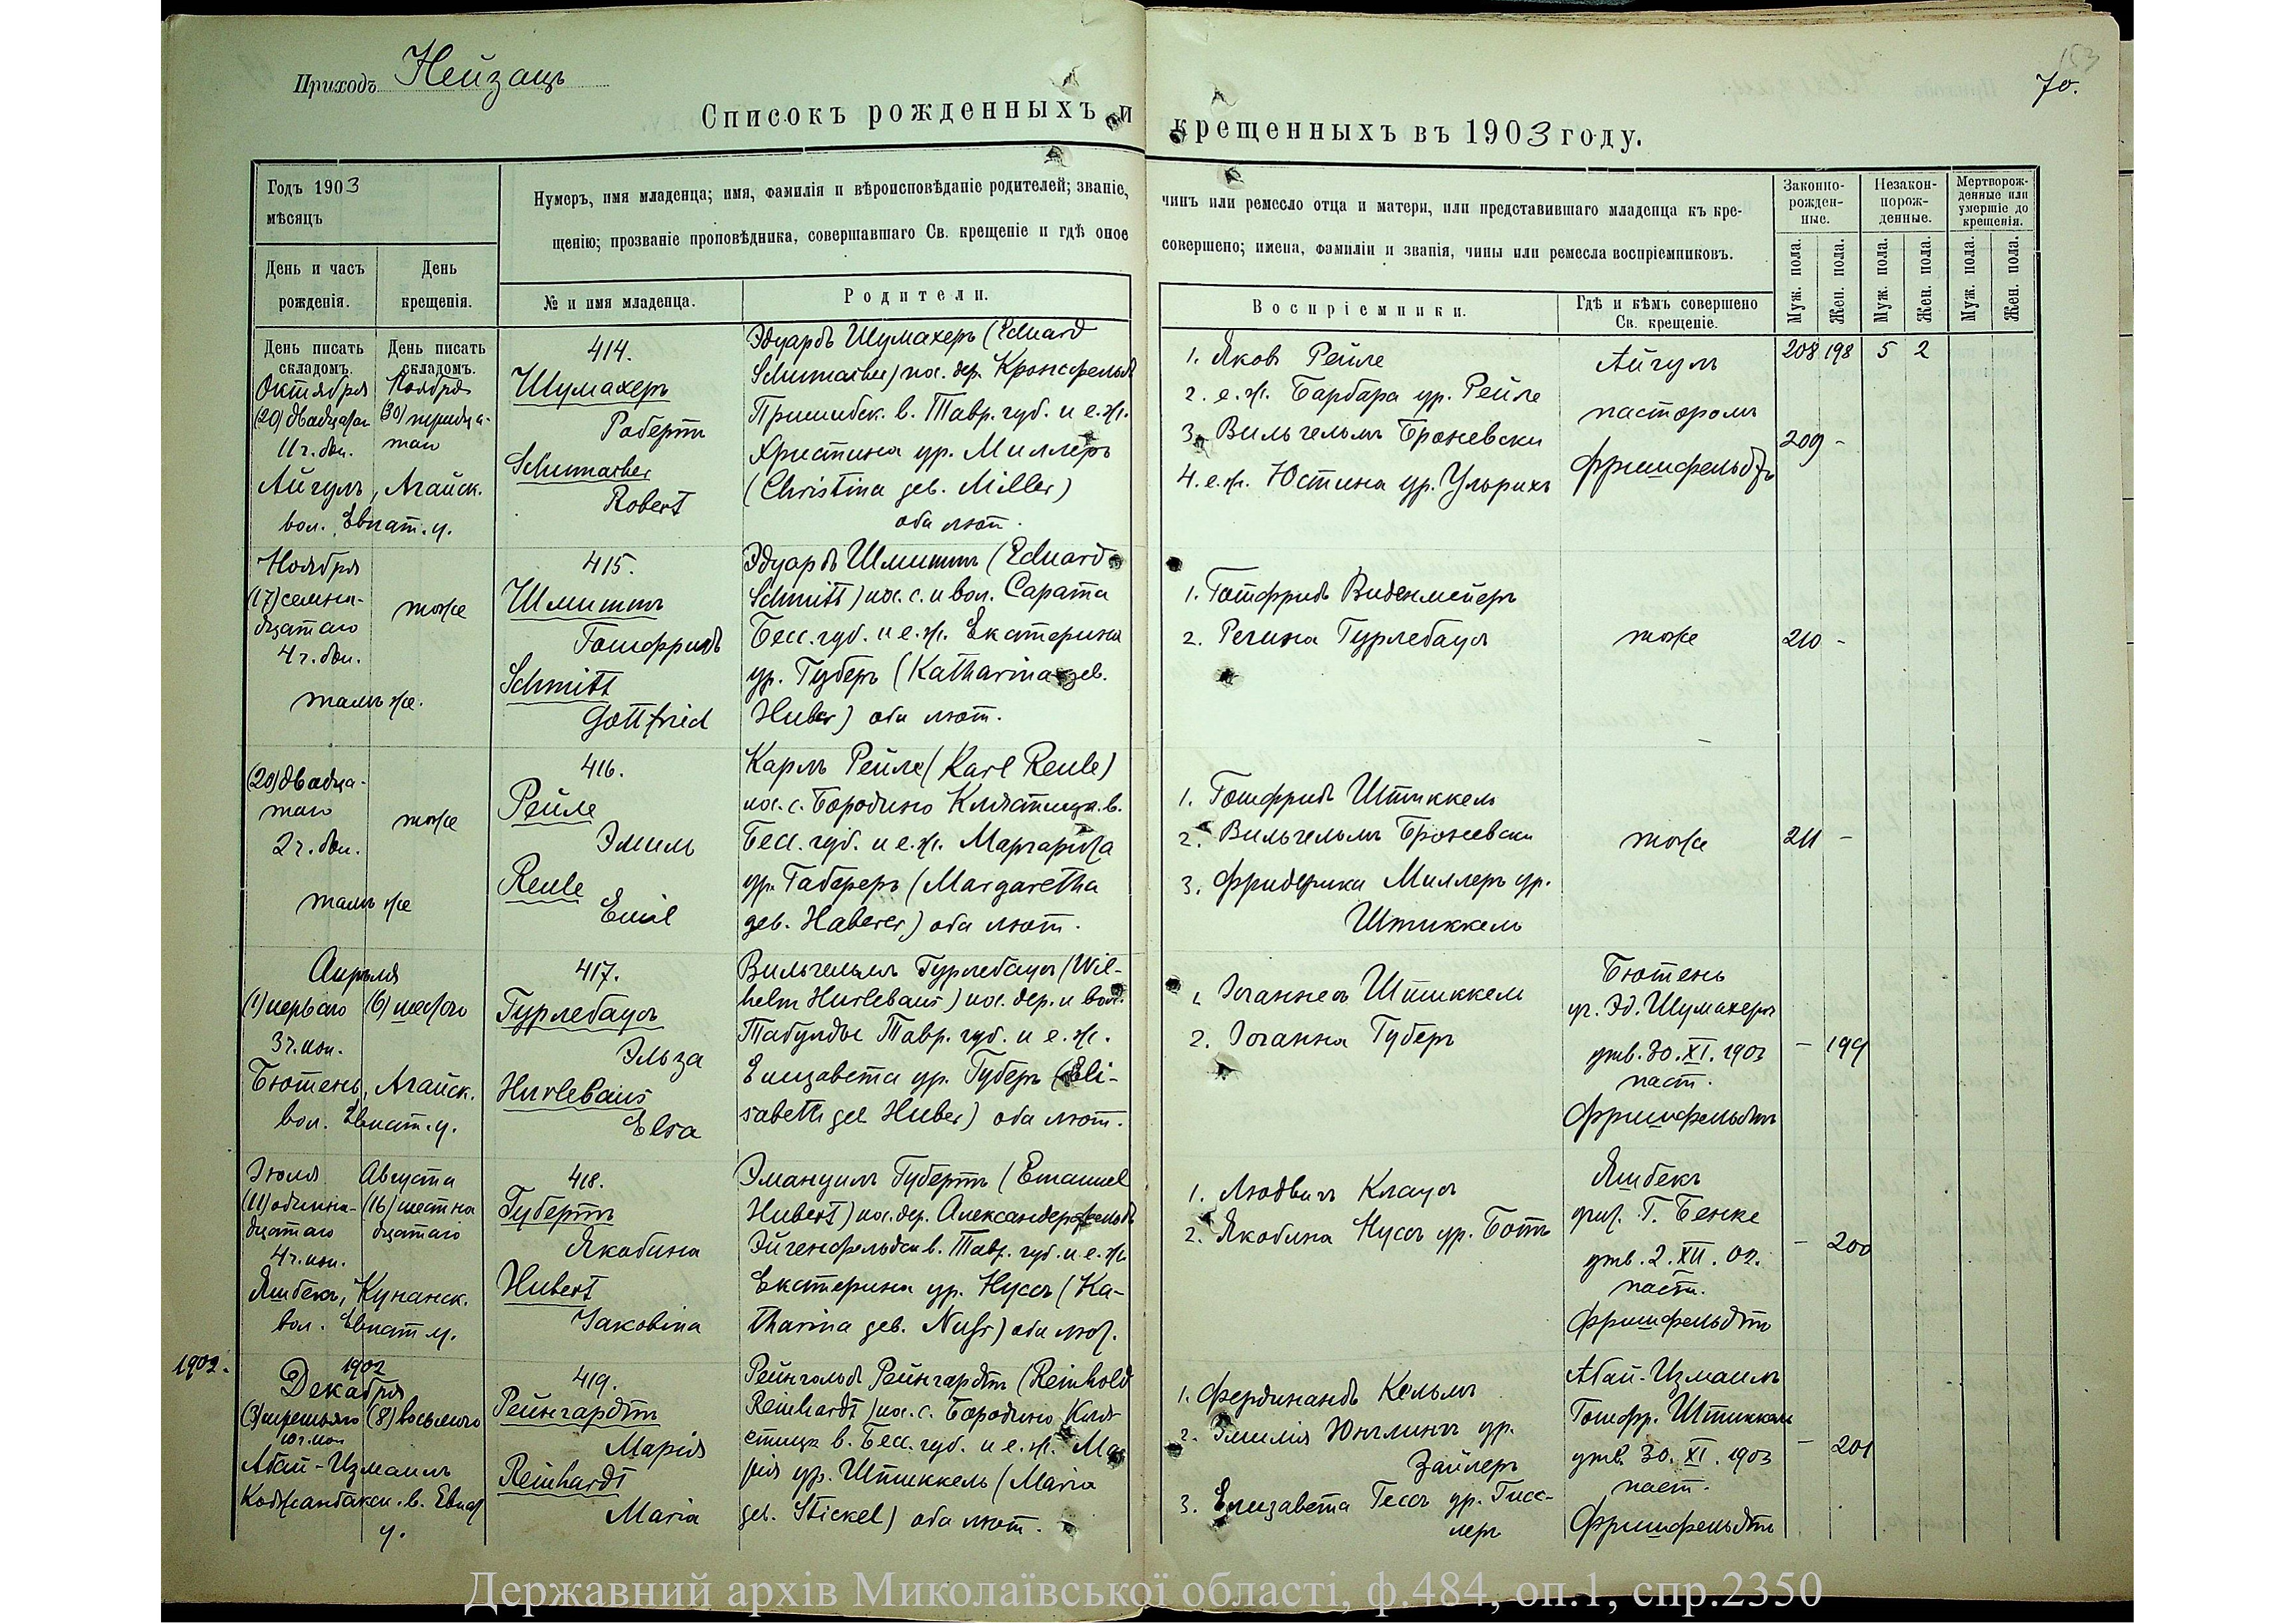 Приходъ Нейзацъ
70.
153
Списокъ рожденныхъ и крещенныхъ въ 1903 году.
Годъ 1903
мѣсяцъ
День и часъ
рожденія.
День
крещенія.
Нумеръ, имя младенца; имя, фамилія и вѣроисповѣданіе родителей; званіе, чинъ или ремесло отца и матери, или представившаго младенца къ кре-
щенію; прозваніе проповѣдника, совершавшаго Св. крещеніе и гдѣ оное совершено; имена, фамиліи и званія, чины или ремесла воспріемниковъ.
№ и имя младенца.
Родители.
Воспріемники.
Гдѣ и кѣмъ совершено
Св. крещеніе.
Законно-
рожден-
ные.
Незакон-
норож-
денные.
Мертворож-
денные или
умершіе до
крещенія.
Муж. пола.
Жен. пола.
Муж. пола.
Жен. пола.
Муж. пола.
Жен. пола.
День писать
складомъ.
День писать
складомъ.
Октября
(20) двадцатаго
11 ч. дн.
Айгулъ, Агайск.
вол. Евпат. у.
Ноября
(30) тридца-
таго
414.
Шумахеръ
Робертъ
Schumacher
Robert
Эдуардъ Шумахеръ (Eduard
Schumacher) пос. дер. Кронсфельдъ
Пришибск. в. Тавр. губ. и е. ж.
Христина ур. Миллеръ
(Christina geb. Miller)
оба лют.
1. Яковъ Рейле
2. е. ж. Барбара ур. Рейле
3. ВильгельмъБроневски
4. е. ж. Юстина ур. Ульрихъ
Айгулъ
пасторомъ
Фришфельдтъ
208 198 5 2
209 -
Ноября
(17) семна-
дцатаго
4 ч. дн.
тамъ же.
тоже
415.
Шмиттъ
Готфридъ
Schmitt
Gottfried
Эдуардъ Шмиттъ (Eduard
Schmitt) пос. с. и вол. Сарата
Бесс. губ. и е. ж. Екатерина
ур. Губеръ (Katharina geb.
Huber) оба лют.
1. Готфридъ Виденмейеръ
2. Регина Гурлебаусъ
тоже
210 -
(20) двадца-
таго
2 ч. дн.
тамъ же
тоже
416.
Рейле
Эмиль
Reule
Emil
Карлъ Рейле (Karl Reule)
пос. с. Бородино Клястицк. в.
Бесс. губ. и е. ж. Маргарита
ур. Габереръ (Margaretha
geb. Haberer) оба лют.
1. Готфридъ Штиккель
2. Вильгельмъ Броневски
3. Фридерика Миллеръ ур.
Штиккель
тоже
211 -
Апрѣля
(1) перваго
3 ч. поп.
Бютень, Агайск.
вол. Евпат. у.
(6) шестого
417.
Гурлебаусъ
Эльза
Hurlebaus
Elsa
Вильгельмъ Гурлебаусъ (Wil-
helm Hurlebaus) пос. дер. и вол.
Табулды Тавр. губ. и е. ж.
Елизавета ур. Губеръ (Eli-
sabeth geb Huber) оба лют.
1. Іоганнесъ Штиккель
2. Іоганна Губеръ
Бютень
уч. Эд. Шумахеръ
утв. 30. XI. 1903
паст.
Фришфельдтъ
- 199
Іюля
(11) одинна-
дцатаго
4 ч. поп.
Яшбекъ, Кунанск.
вол. Евпат у.
Августа
(16) шестна
дцатаго
418.
Губертъ
Якобина
Hubert
Jakobina
Эмануилъ Губертъ (Emanuel
Hubert) пос. дер. Александерфельдъ
Эйгенфельдск в. Тавр. губ. и е. ж.
Екатерина ур. Нуссъ (Ka-
tharina geb. Nuß) оба лют.
1. Людвигъ Клаусъ
2. Якобина Нуссъ ур. Ботъ
Яшбекъ
Г. Бенке
утв. 2. XII. 02.
паст.
Фришфельдтъ
- 200
1902.
1902
Декабря
(3) третьяго
10 ч. поп
Абай-Измаилъ
Коджанбакск. в. Евпат
у.
(8) восьмого
419.
Рейнгардтъ
Марія
Reinhardt
Maria
Рейнгольдъ Рейнгардтъ (Reinhold
Reinhardt) пос. с. Бородино Кля-
стицк в. Бесс. губ. и е. ж. Ма-
рія ур. Штиккель (Maria
geb. Stickel) оба лют.
1. Фердинандъ Кельмъ
2. Эмилія Юнглингъ ур.
Зайлеръ
3. Елизавета Гессъ ур. Гисс-
леръ
Абай-Измаилъ
Готфр. Штиккель
утв. 30. XI. 1903
паст.
Фришфельдтъ
- 201
Державний архів Миколаївської області, ф.484, оп.1, спр.2350